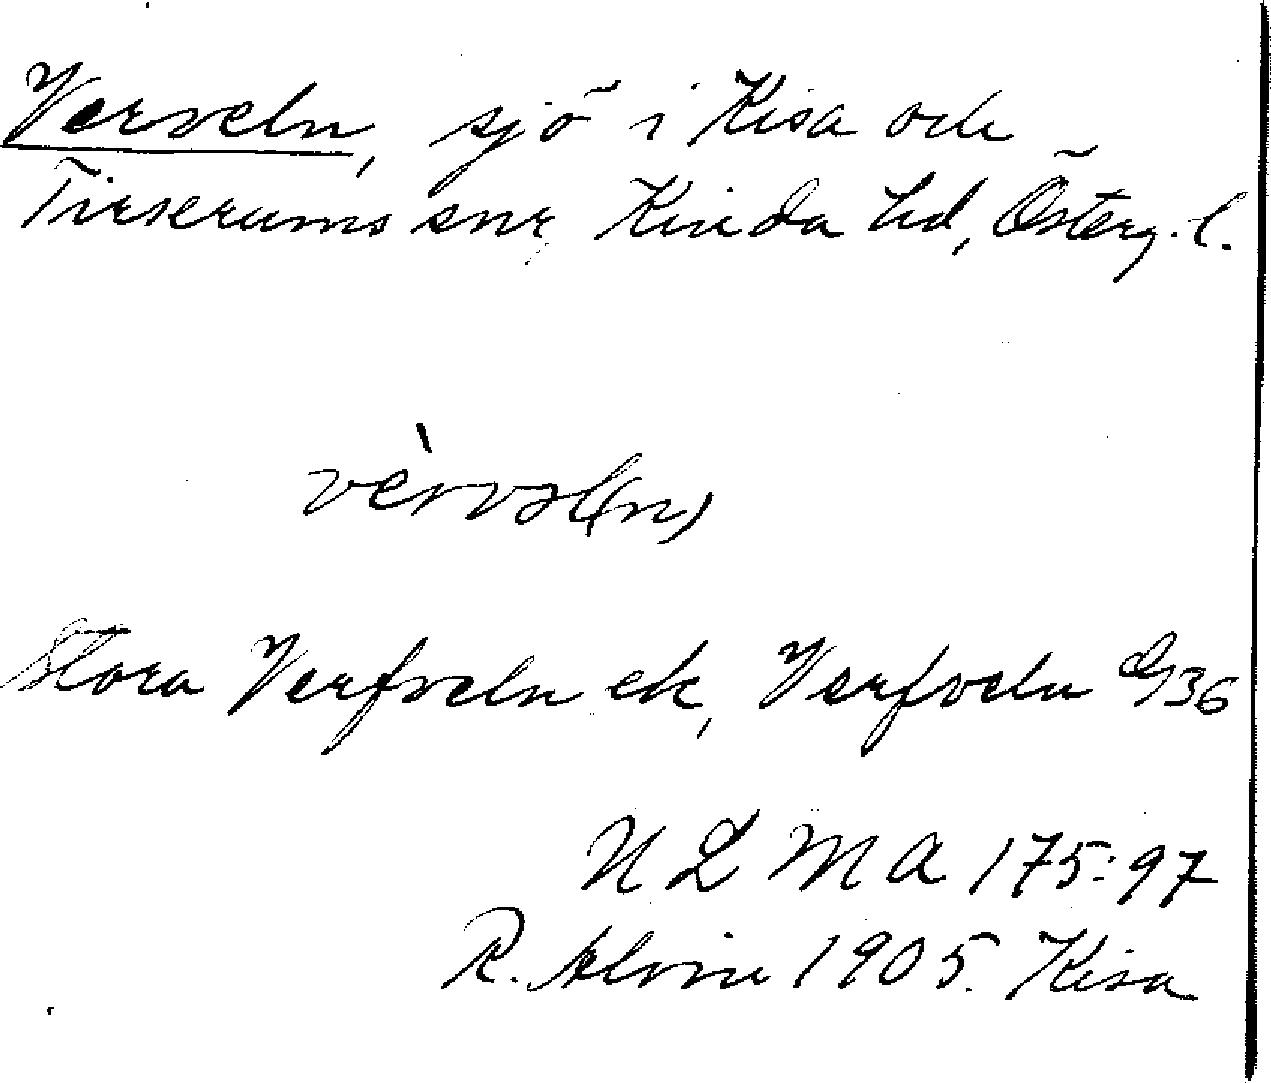 Verveln, sjö i Kisa och
Tirserums snr, Kinda hd, Österg. l.
vèrvəl(n)
Stora Verfveln ek, Verfveln G36
ULMA 175:97
R. Alvin 1905. Kisa